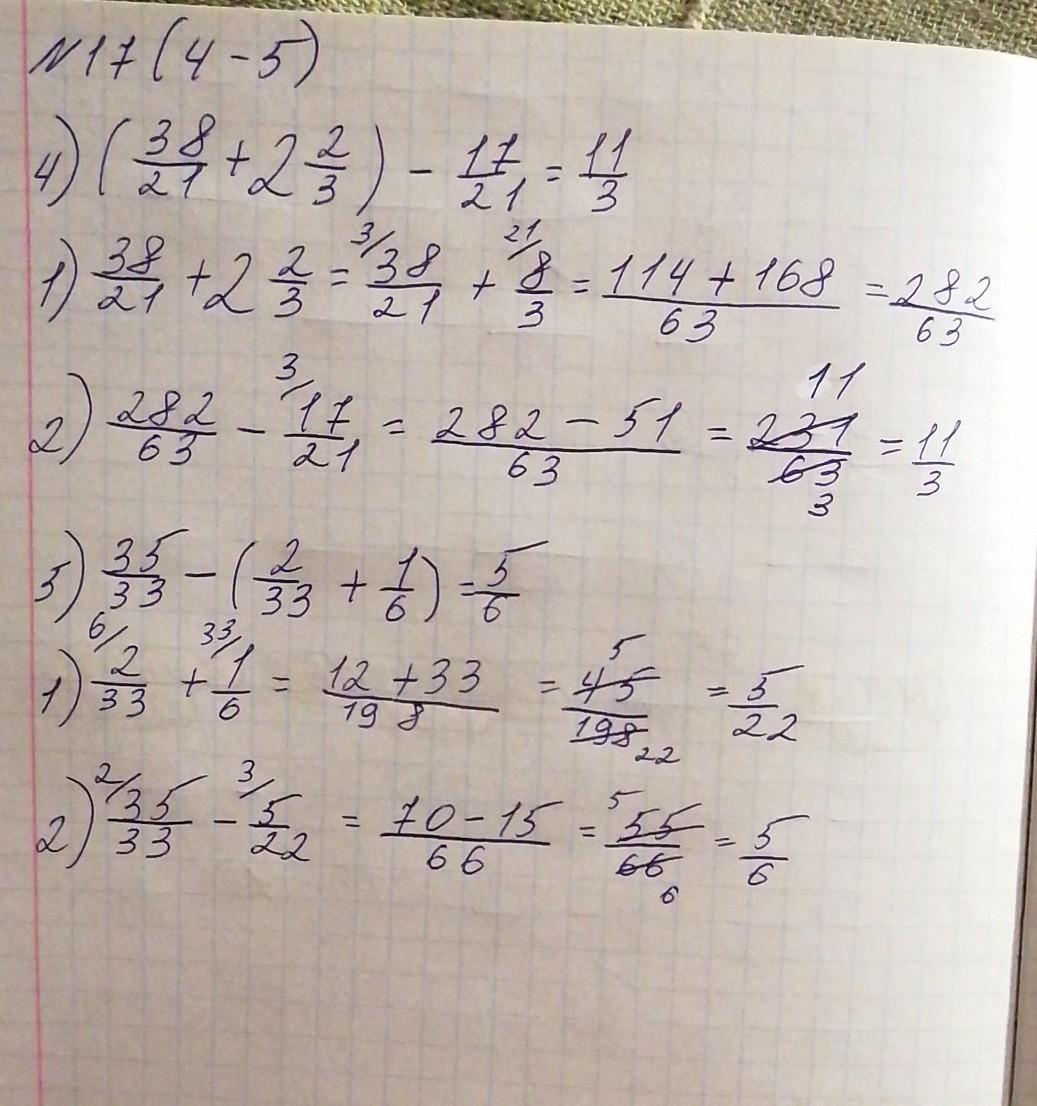 N17 (4-5)
4) (38/21 + 2 2/3) - 17/21 = 11/3
1) 38/21 + 2 2/3 = 3/ 38/21 + 21/ 8/3 = 114 + 168/63 = 282/63
2) 282/63 - 3/ 17/21 = 282 - 51/63 = 231/63 11 3 = 11/3
5) 35/33 - (2/33 + 1/6) = 5/6
1) 6/ 2/33 + 33/ 1/6 = 12 + 33/198 = 5 45/198 22 = 5/22
2) 2/ 35/33 - 3/ 5/22 = 70 - 15/66 = 5 55/66 6 = 5/6